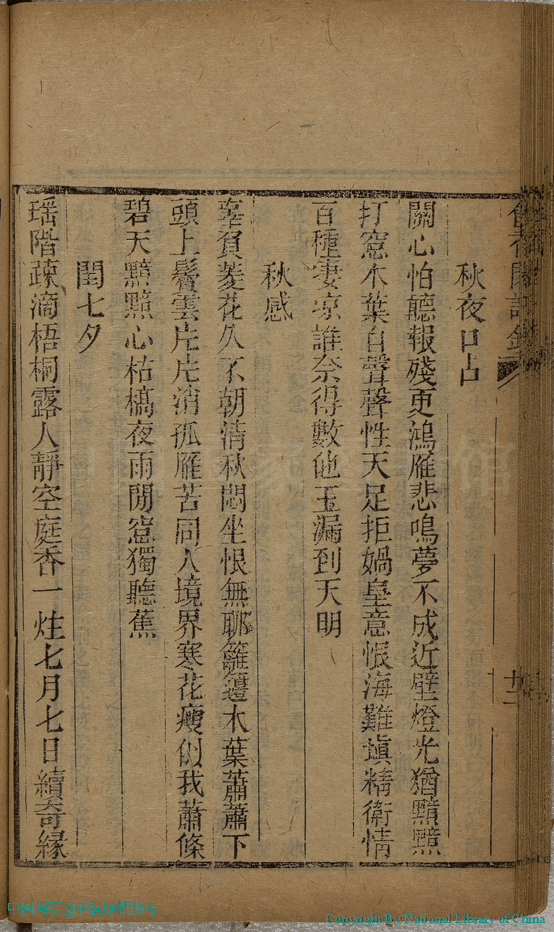 秋夜口占
關心怕聽報殘更鴻雁悲鳴夢不成近壁燈光猶黯黯
打窓木葉自聲聲性天足拒媧皇意恨海難塡精衛情
百種凄凉誰奈得數他玉漏到天明
秋感
辜負菱花久不朝清秋悶坐恨無聊籬邊木葉蕭蕭下
頭上鬢雲片片消孤雁苦同人境界寒花瘦似我蕭條
碧天黯黯心枯槁夜雨閒窓獨聽蕉
閏七夕
瑶階疎滴梧桐露人靜空庭香一炷七月七日續奇緣
Copyright By National Library of China